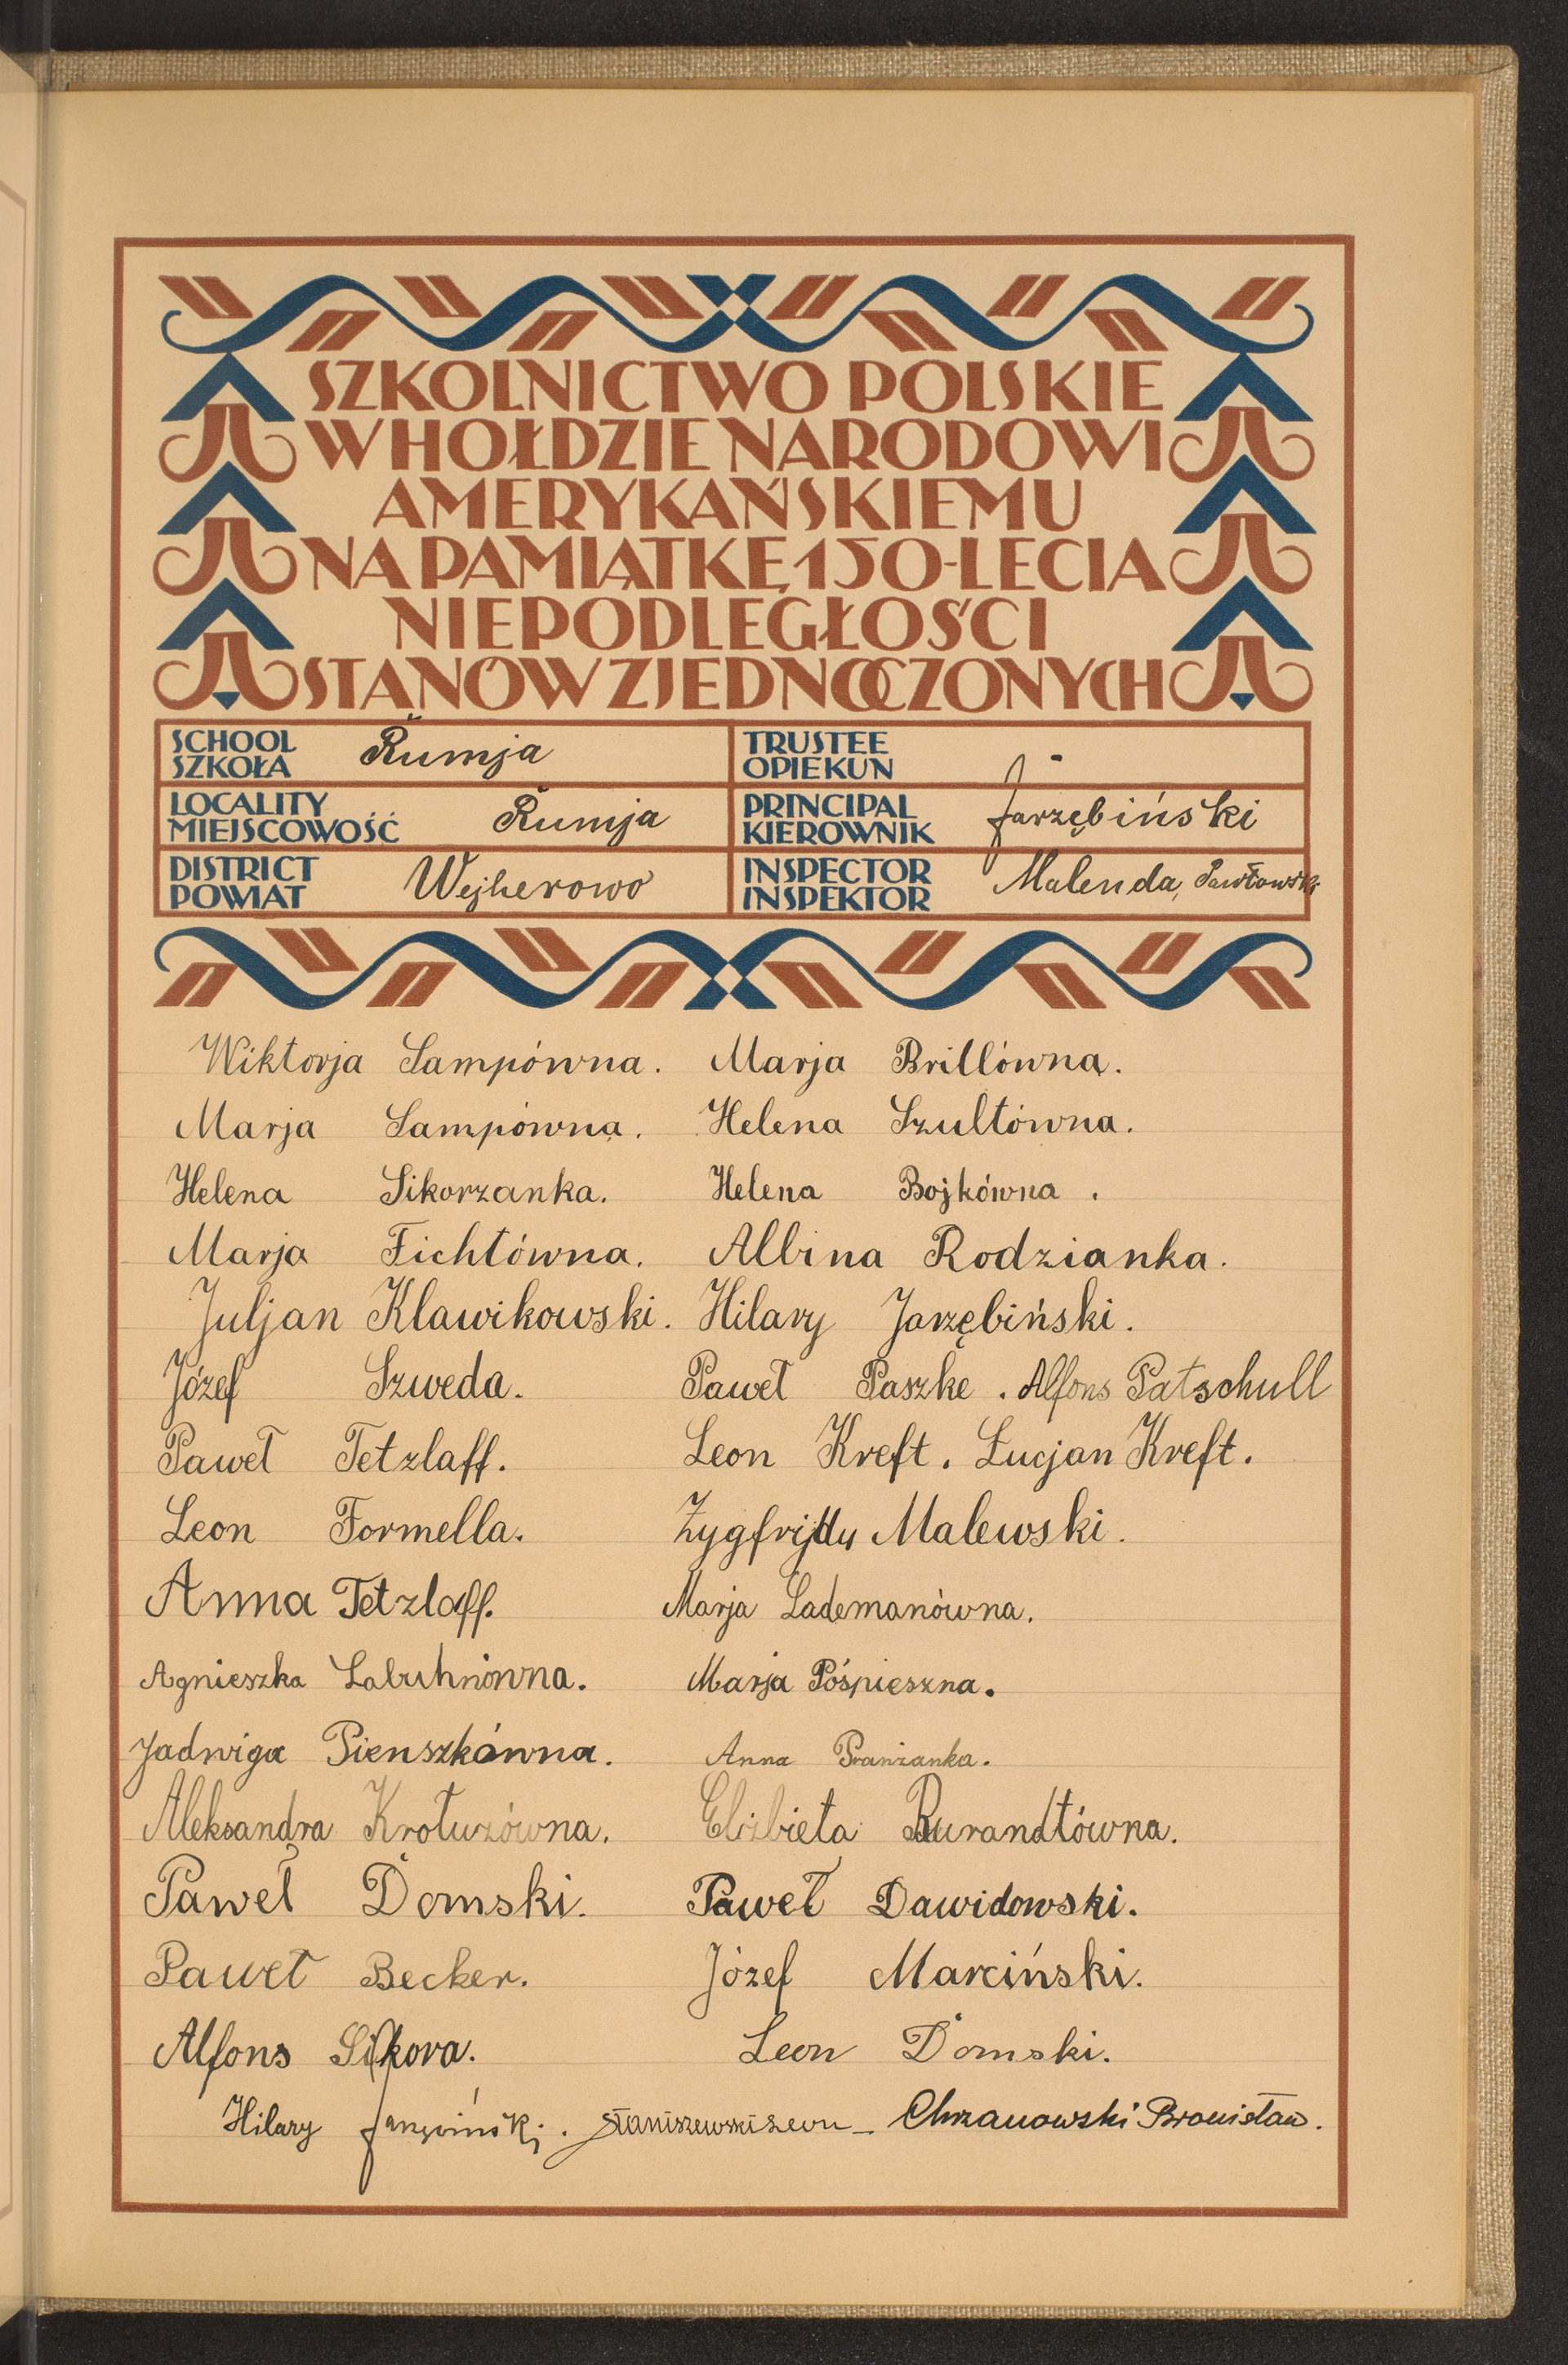 SZKOLNICTWO POLSKIE
W HOŁDZIE NARODOWI
AMERYKAŃSKIEMU
NA PAMIĄTKĘ 150-LECIA
NIEPODLEGŁOŚCI
STANÓW ZJEDNOCZONYCH
SCHOOL SZKOŁA Rumja
TRUSTEE OPIEKUN -
LOCALITY MIEJSCOWOŚĆ Rumja
PRINCIPAL KIEROWNIK Jarzębiński
DISTRICT POWIAT Wejherowo
INSPECTOR INSPEKTOR Malenda, Pawłowski
Wiktorja Lampówna. Marja Brillówna.
Marja Lampówna. Helena Szultówna.
Helena Sikorzanka. Helena Bojkówna.
Marja Fichtówna. Albina Rodzianka.
Juljan Klawikowski. Hilary Jarzębiński.
Józef Szweda. Paweł Paszke. Alfons Patschull
Paweł Tetzlaff. Leon Kreft. Łucjan Kreft.
Leon Formella. Malewski.
Anna Tetzlaff. Marja Lademanówna.
Agnieszka Labuhnówna. Marja Pośpieszna.
Jadwiga Pienszkówna. Anna
Aleksandra Krotuzówna. Elżbieta Burandtówna.
Paweł Domski. Paweł Dawidowski.
Paweł Becker. Józef Marciński.
Alfons Sikora. Leon Domski.
Hilary Staniszewski Leon Chrzanowski Bronisław.